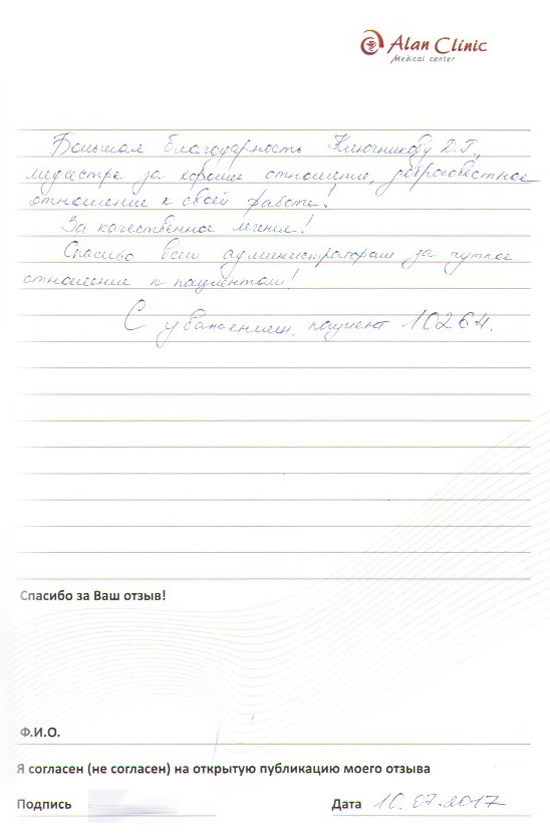 Alan Clinic
Medical center
Большая благодарность Ключникову Д.Г.,
медсестре за хорошее отношение, добросовестное
отношение к своей работе!
За качественное лечение!
Спасибо всем администраторам за чуткое
отношение к пациентам!
С уважением, пациент 10264.
Спасибо за Ваш отзыв!
Ф.И.О.
Я согласен (не согласен) на открытую публикацию моего отзыва
Подпись Дата 10.07.2017